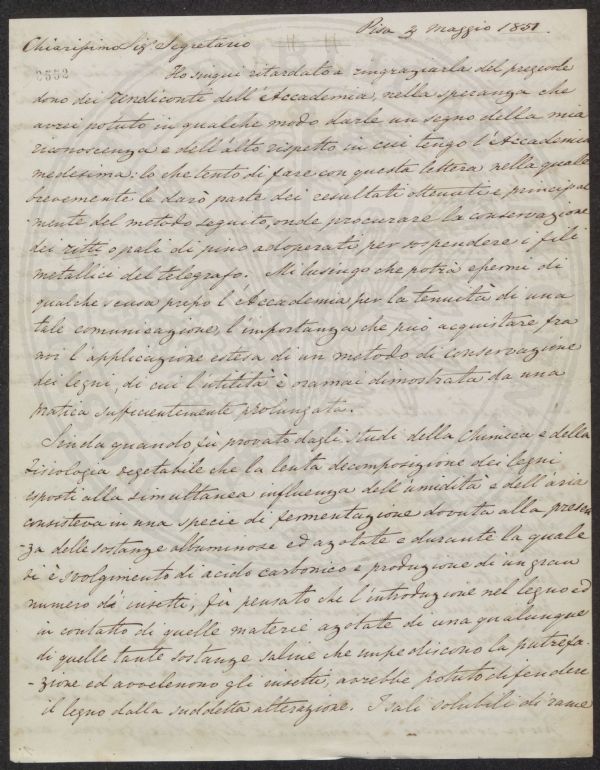 Pisa 3 Maggio 1851.
Chiarissimo Sig.r Segretario
Ho sinqui ritardato a ringraziarla del pregevole
dono dei Rendiconti dell'Accademia, nella speranza che
avrei potuto in qualche modo darle un segno della mia
riconoscenza e dell'alto rispetto in cui tengo l'Accademia
medesima: lo che tento di fare con questa lettera nella quale
brevemente le darò parte dei resultati ottenuti e principal
mente del metodo seguito, onde procurare la conservazione
dei ritti o pali di pino adoperati per sospendere i fili
metallici del telegrafo. Mi lusingo che potrà essermi di
qualche scusa presso l'Accademia per la tenuità di una
tale comunicazione, l'importanza che può acquistare fra
noi l'applicazione estesa di un metodo di conservazione
dei legni, di cui l'utilità è oramai dimostrata da una
pratica sufficientemente prolungata.
Sin da quando fù provato dagli studi della Chimica e della
Fisiologia vegetabile che la lenta decomposizione dei legni
esposti alla simultanea influenza dell'umidità e dell'aria
consisteva in una specie di fermentazione dovuta alla presen
-za delle sostanze albuminose ed azotate e durante la quale
vi è svolgimento di acido carbonico e produzione di un gran
numero di insetti, fù pensato che l'introduzione nel legno ed
in contatto di quelle materie azotate di una qualunque
di quelle tante sostanze saline che impediscono la putrefa
-zione ed avvelenono gli insetti, avrebbe potuto difendere
il legno dalla suddetta alterazione. I sali solubili di rame